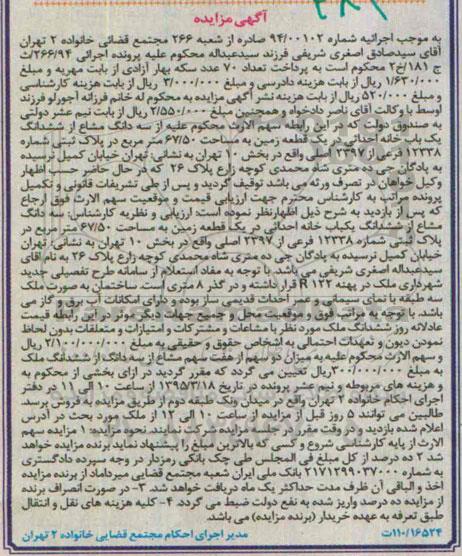 آگهی مزایده
به موجب اجرائیه شماره 94/00102 صادره از شعبه 266 مجتمع قضائی خانواده 2 تهران
آقای سیدصادق اصغری شریفی فرزند سیدعبداله محکوم علیه پرونده اجرائی 266/94/ث
ج 181/خ2 محکوم است به پرداخت تعداد 70 عدد سکه بهار آزادی از بابت مهریه و مبلغ
1/630/000 ریال از بابت هزینه دادرسی و مبلغ 3/000/000 ریال از بابت هزینه کارشناسی
و مبلغ 520/000 ریال از بابت هزینه نشر آگهی مزایده به محکوم له خانم فرزانه آجورلو فرزند
اوسط با وکالت آقای ناصر دادخواه و همچنین مبلغ 2/550/000 ریال از بابت نیم عشر دولتی
به صندوق دولت که در این رابطه سهم الارث محکوم علیه از سه دانگ مشاع از ششدانگ
یک باب خانه احداثی در یک قطعه زمین به مساحت 67/50 متر مربع در پلاک ثبتی شماره
12338 فرعی از 2397 اصلی واقع در بخش 10 تهران به نشانی: تهران خیابان کمیل نرسیده
به پادگان جی ده متری شاه محمدی کوچه زارع پلاک 26 که در حال حاضر حسب اظهار
وکیل خواهان در تصرف ورثه می باشد توقیف گردید و پس از طی تشریفات قانونی و تکمیل
پرونده مراتب به کارشناس محترم جهت ارزیابی قیمت و موقعیت سهم الارث فوق ارجاع
که پس از بازدید به شرح ذیل اظهارنظر نموده است: ارزیابی و نظریه کارشناس: سه دانگ
مشاع از ششدانگ یکباب خانه احداثی در یک قطعه زمین به مساحت 67/50 متر مربع در
پلاک ثبتی شماره 12338 فرعی از 2397 اصلی واقع در بخش 10 تهران به نشانی: تهران
خیابان کمیل نرسیده به پادگان جی ده متری شاه محمدی کوچه زارع پلاک 26 به نام آقای
سیدعبداله اصغری شریفی می باشد. با توجه به مفاد استعلام از سامانه طرح تفصیلی جدید
شهرداری ملک در پهنه R122 قرار داشته و در گذر 8 متری است. ساختمان به صورت ملک
سه طبقه با نمای سیمانی و عمر احداث قدیمی ساز بوده و دارای امکانات آب برق و گاز می
باشد. با توجه به مراتب فوق و موقعیت محل و جمیع جهات دیگر موثر و در این رابطه قیمت
عادلانه روز ششدانگ ملک مورد نظر با مشاعات و مشترکات و امتیازات و متعلقات بدون لحاظ
نمودن دیون و تعهدات احتمالی به اشخاص حقوق و حقیقی به مبلغ 2/100/000/000 ریال
و سهم الارث محکوم علیه به میزان دو سهم از هفت سهم مشاع از سه دانگ از ششدانگ ملک
به مبلغ 300/000/000 ریال تعیین می گردد که مقرر گردید در ازای بخشی از محکوم به
و هزینه های مربوطه و نیم عشر پرونده در تاریخ 1395/3/18 از ساعت 10 الی 11 در دفتر
اجرای احکام خانواده 2 تهران واقع در میدان ونک طبقه دوم از طریق مزایده به فروش برسد.
طالبین می توانند 5 روز قبل از مزایده از ساعت 10 الی 12 از ملک مورد بحث در آدرس
اعلام شده بازدید و در وقت مقرر در جلسه مزایده شرکت نمایند. نحوه مزایده: 1 مزایده سهم
الارث از پایه کارشناسی شروع و کسی که بالاترین مبلغ را پیشنهاد نماید برنده مزایده خواهد
شد 2 ده درصد از کل مبلغ فی المجلس طی چک بانکی رمزدار در وجه سپرده دادگستری
به شماره 2171299037000 بانک ملی ایران شعبه مجتمع قضایی میرداماد از برنده مزایده
اخذ و الباقی آن ظرف مدت حداکثر یک ماه دریافت خواهد شد. 3- در صورت انصراف برنده
از مزایده ده درصد واریز شده به نفع دولت ضبط می گردد 4- کلیه هزینه های نقل و انتقال
طبق تعرفه به عهده خریدار (برنده مزایده) می باشد.
110/16524ت مدیر اجرای احکام مجتمع قضایی خانواده 2 تهران